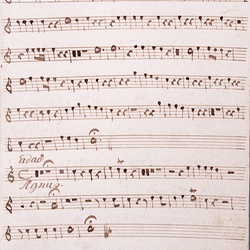 adaº
Agnus